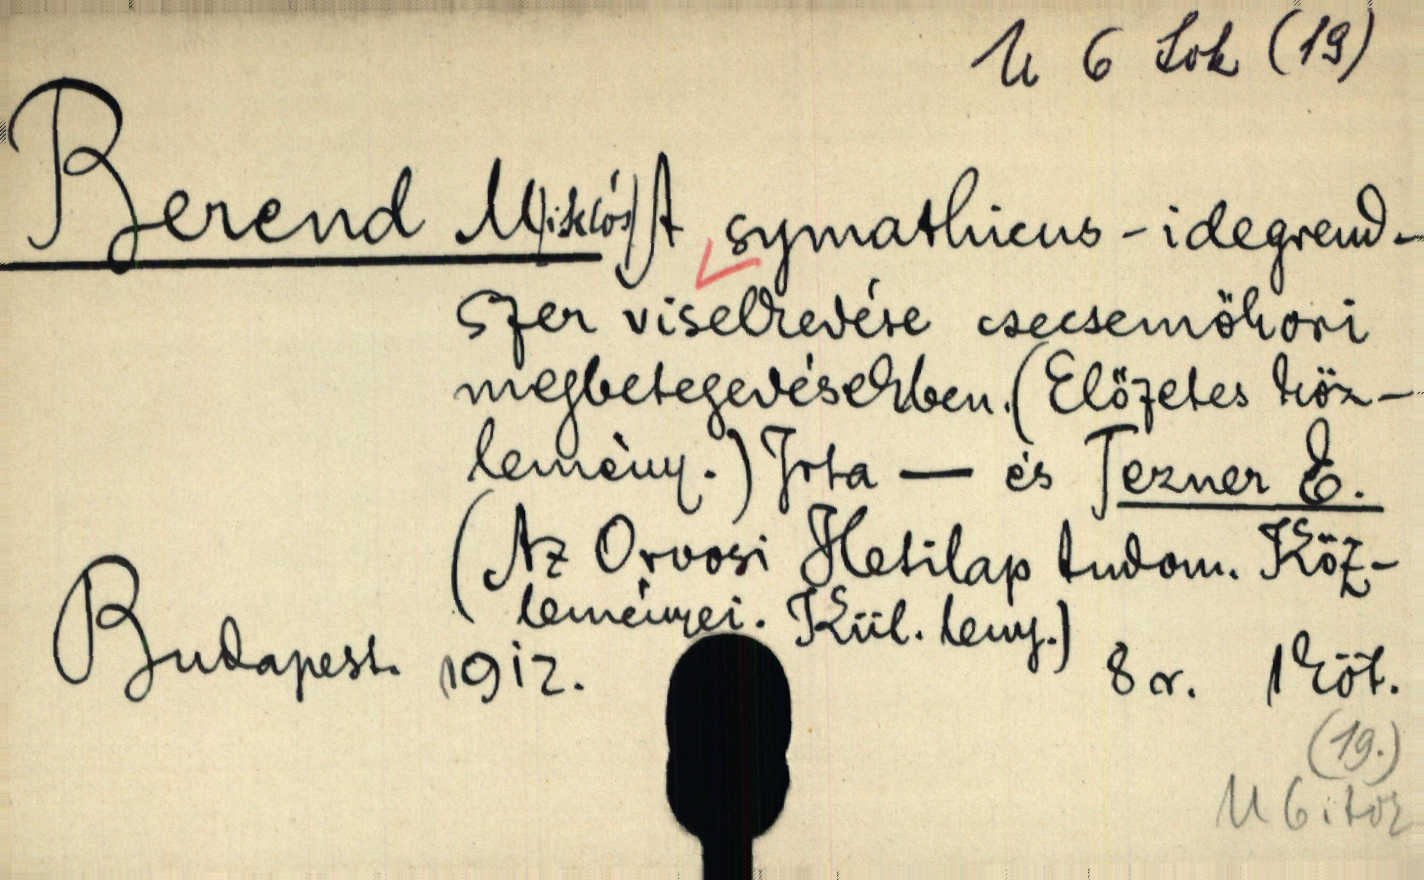 U 6 Sok (19)
Berend M(iklós) A symathicus-idegrend-
szer viselkedése csecsemőkori
megbetegedésekben. (Előzetes köz-
lemény.) Irta — és Tezner E.
(Az Orvosi Hetilap tudom. Köz-
leményei. Kül. leny.)
Budapest. 1912. 8r. 1 köt.
(19.)
U 6